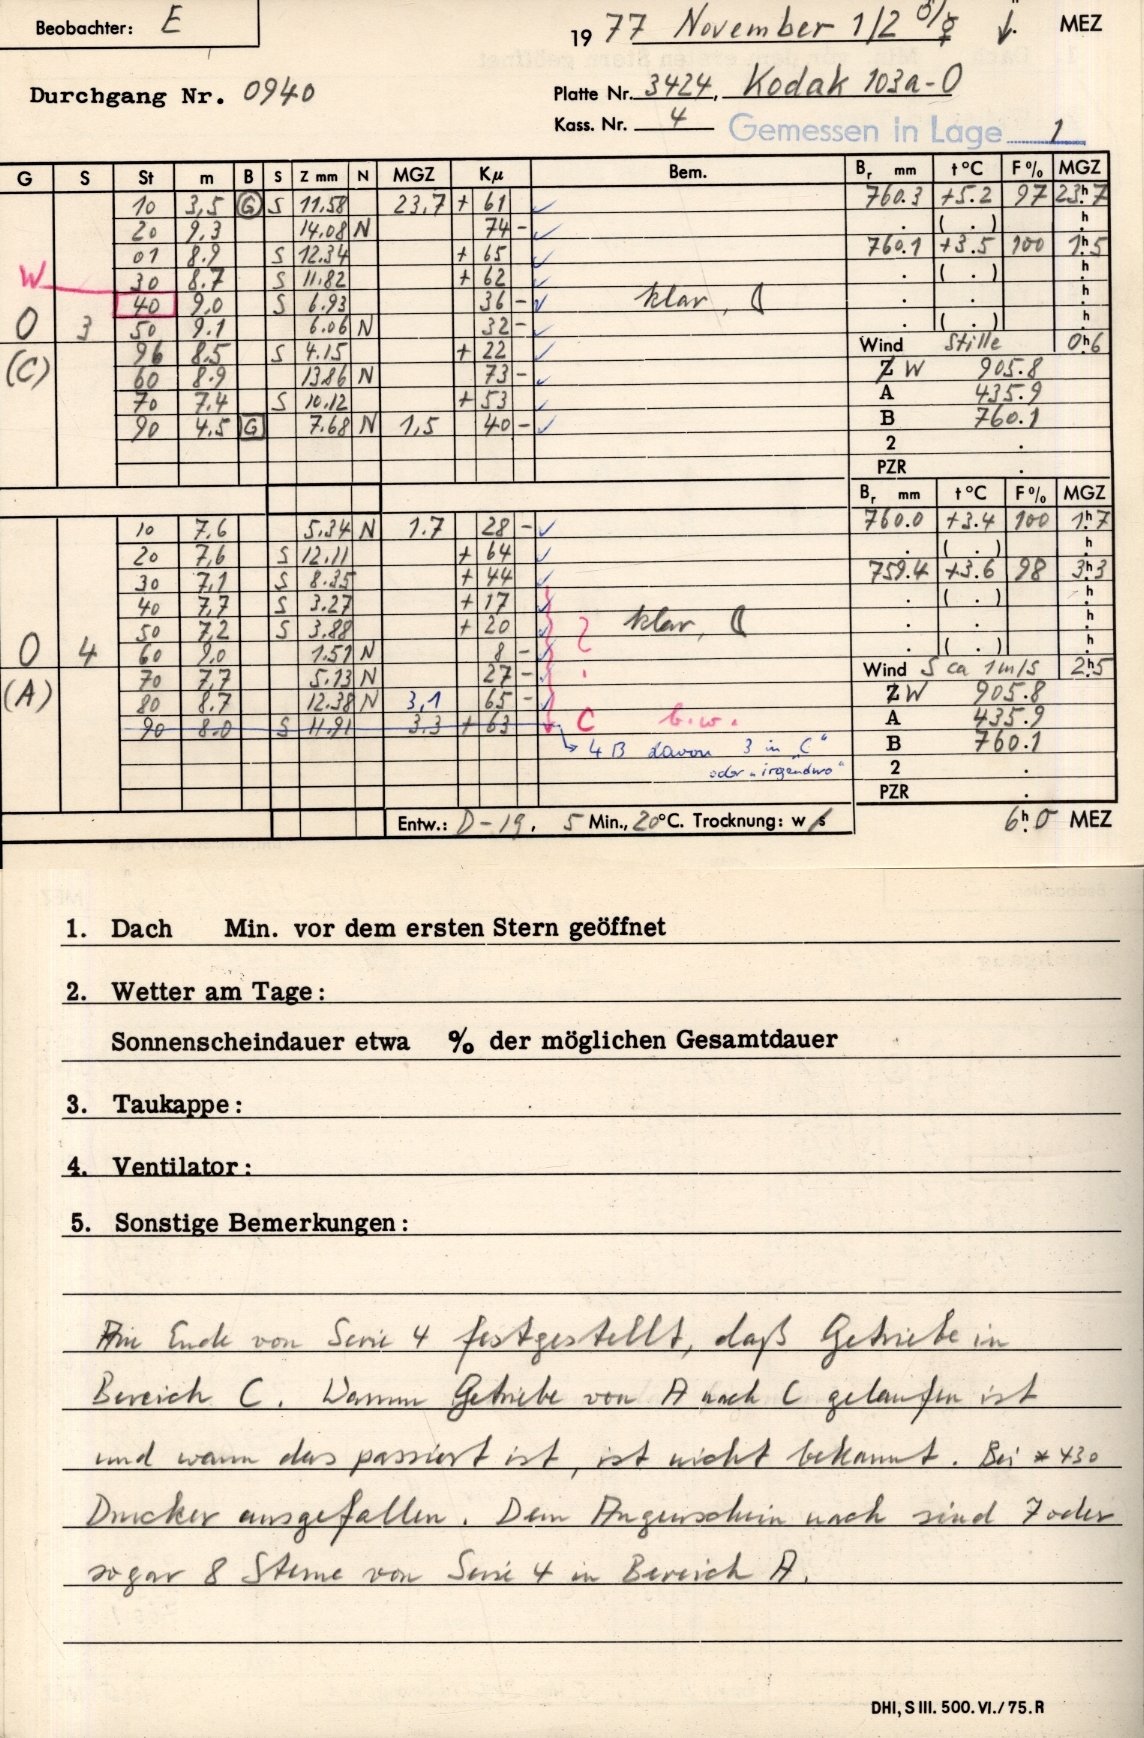 Beobachter: E
19 77 November 1/2 ♂/☿ ↓. MEZ
Durchgang Nr. 0940
Platte Nr. 3424, Kodak 103a-O
Kass. Nr. 4 Gemessen in Lage 1
G S St m B S Z mm N MGZ Kμ Bem. Br mm t°C F% MGZ
10 3,5 G S 11.58 23,7 + 61 760.3 +5.2 97 23h7
20 9,3 14.08 N 74 - . ( . ) h.
01 8.9 S 12.34 + 65 760.1 +3.5 100 1h5
W 30 8.7 S 11.82 + 62 . ( . ) h.
40 9,0 S 6.93 36 - klar, ☾ . . h.
0 3 50 9.1 6.06 N 32 - . ( . ) h.
96 8.5 S 4.15 + 22 Wind Stille 0h6
(C) 60 8.9 13.86 N 73 - Z W 905.8
70 7.4 S 10.12 + 53 A 435.9
90 4,5 G 7.68 N 1,5 40 - B 760.1
2 .
PZR .
Br mm t°C F% MGZ
10 7,6 5.34 N 1.7 28 - 760.0 +3.4 100 1h7
20 7,6 S 12.11 + 64 . ( . ) h
30 7,1 S 8.35 + 44 759.4 +3.6 98 3h3
40 7,7 S 3.27 + 17 . ( . ) h.
50 7,2 S 3.88 + 20 ? klar, ☾ . . h.
0 4 60 9,0 1.51 N 8 - . ( . ) h.
70 7,7 5.13 N 27 - Wind S ca 1m/s 2h5
(A) 80 8.7 12.38 N 3,1 65 - Z W 905.8
90 8.0 S 11.91 3.3 + 63 C b.w. A 435.9
4 B davon 3 in „C“ B 760.1
oder „irgendwo“ 2 .
PZR .
Entw.: D-19, 5 Min., 20°C. Trocknung: w/s 6h.0 MEZ
1. Dach Min. vor dem ersten Stern geöffnet
2. Wetter am Tage:
Sonnenscheindauer etwa % der möglichen Gesamtdauer
3. Taukappe:
4. Ventilator:
5. Sonstige Bemerkungen:
Am Ende von Serie 4 festgestellt, daß Getriebe in
Bereich C. Warum Getriebe von A nach C gelaufen ist
und wann das passiert ist, ist nicht bekannt. Bei * 430
Drucker ausgefallen. Dem Augenschein nach sind 7 oder
sogar 8 Sterne von Serie 4 in Bereich A.
DHI, S III. 500. VI./75. R